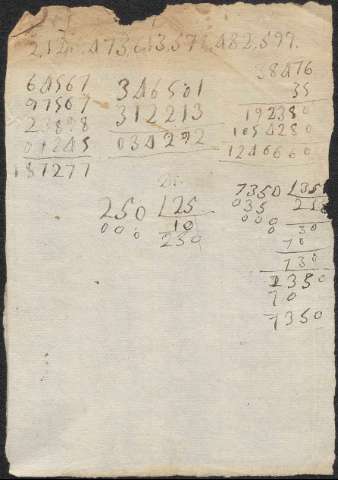 473,613,571,482,597.
64567
97567
23898
01245
187277
346501
312213
034292
38476
35
192380
1054280
1246660
250 25
000 10
250
7350 35
035 21
000
70
7350
70
7350